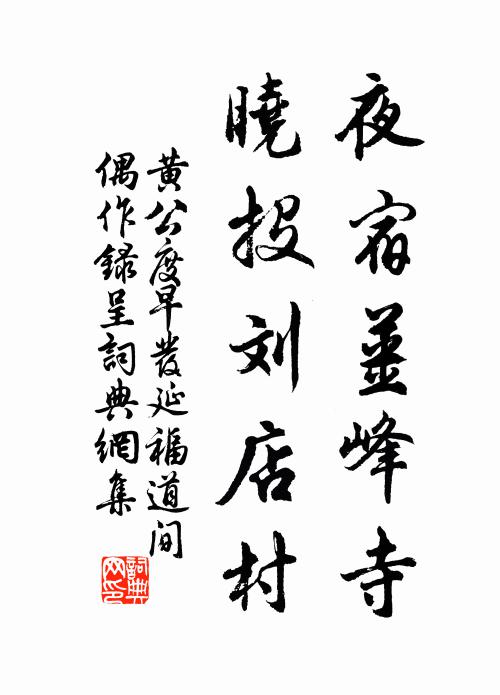 夜宿薑峰寺
曉投刘店村
黃公度早發延福道间
偶作録呈詞典網集
詞典
网印